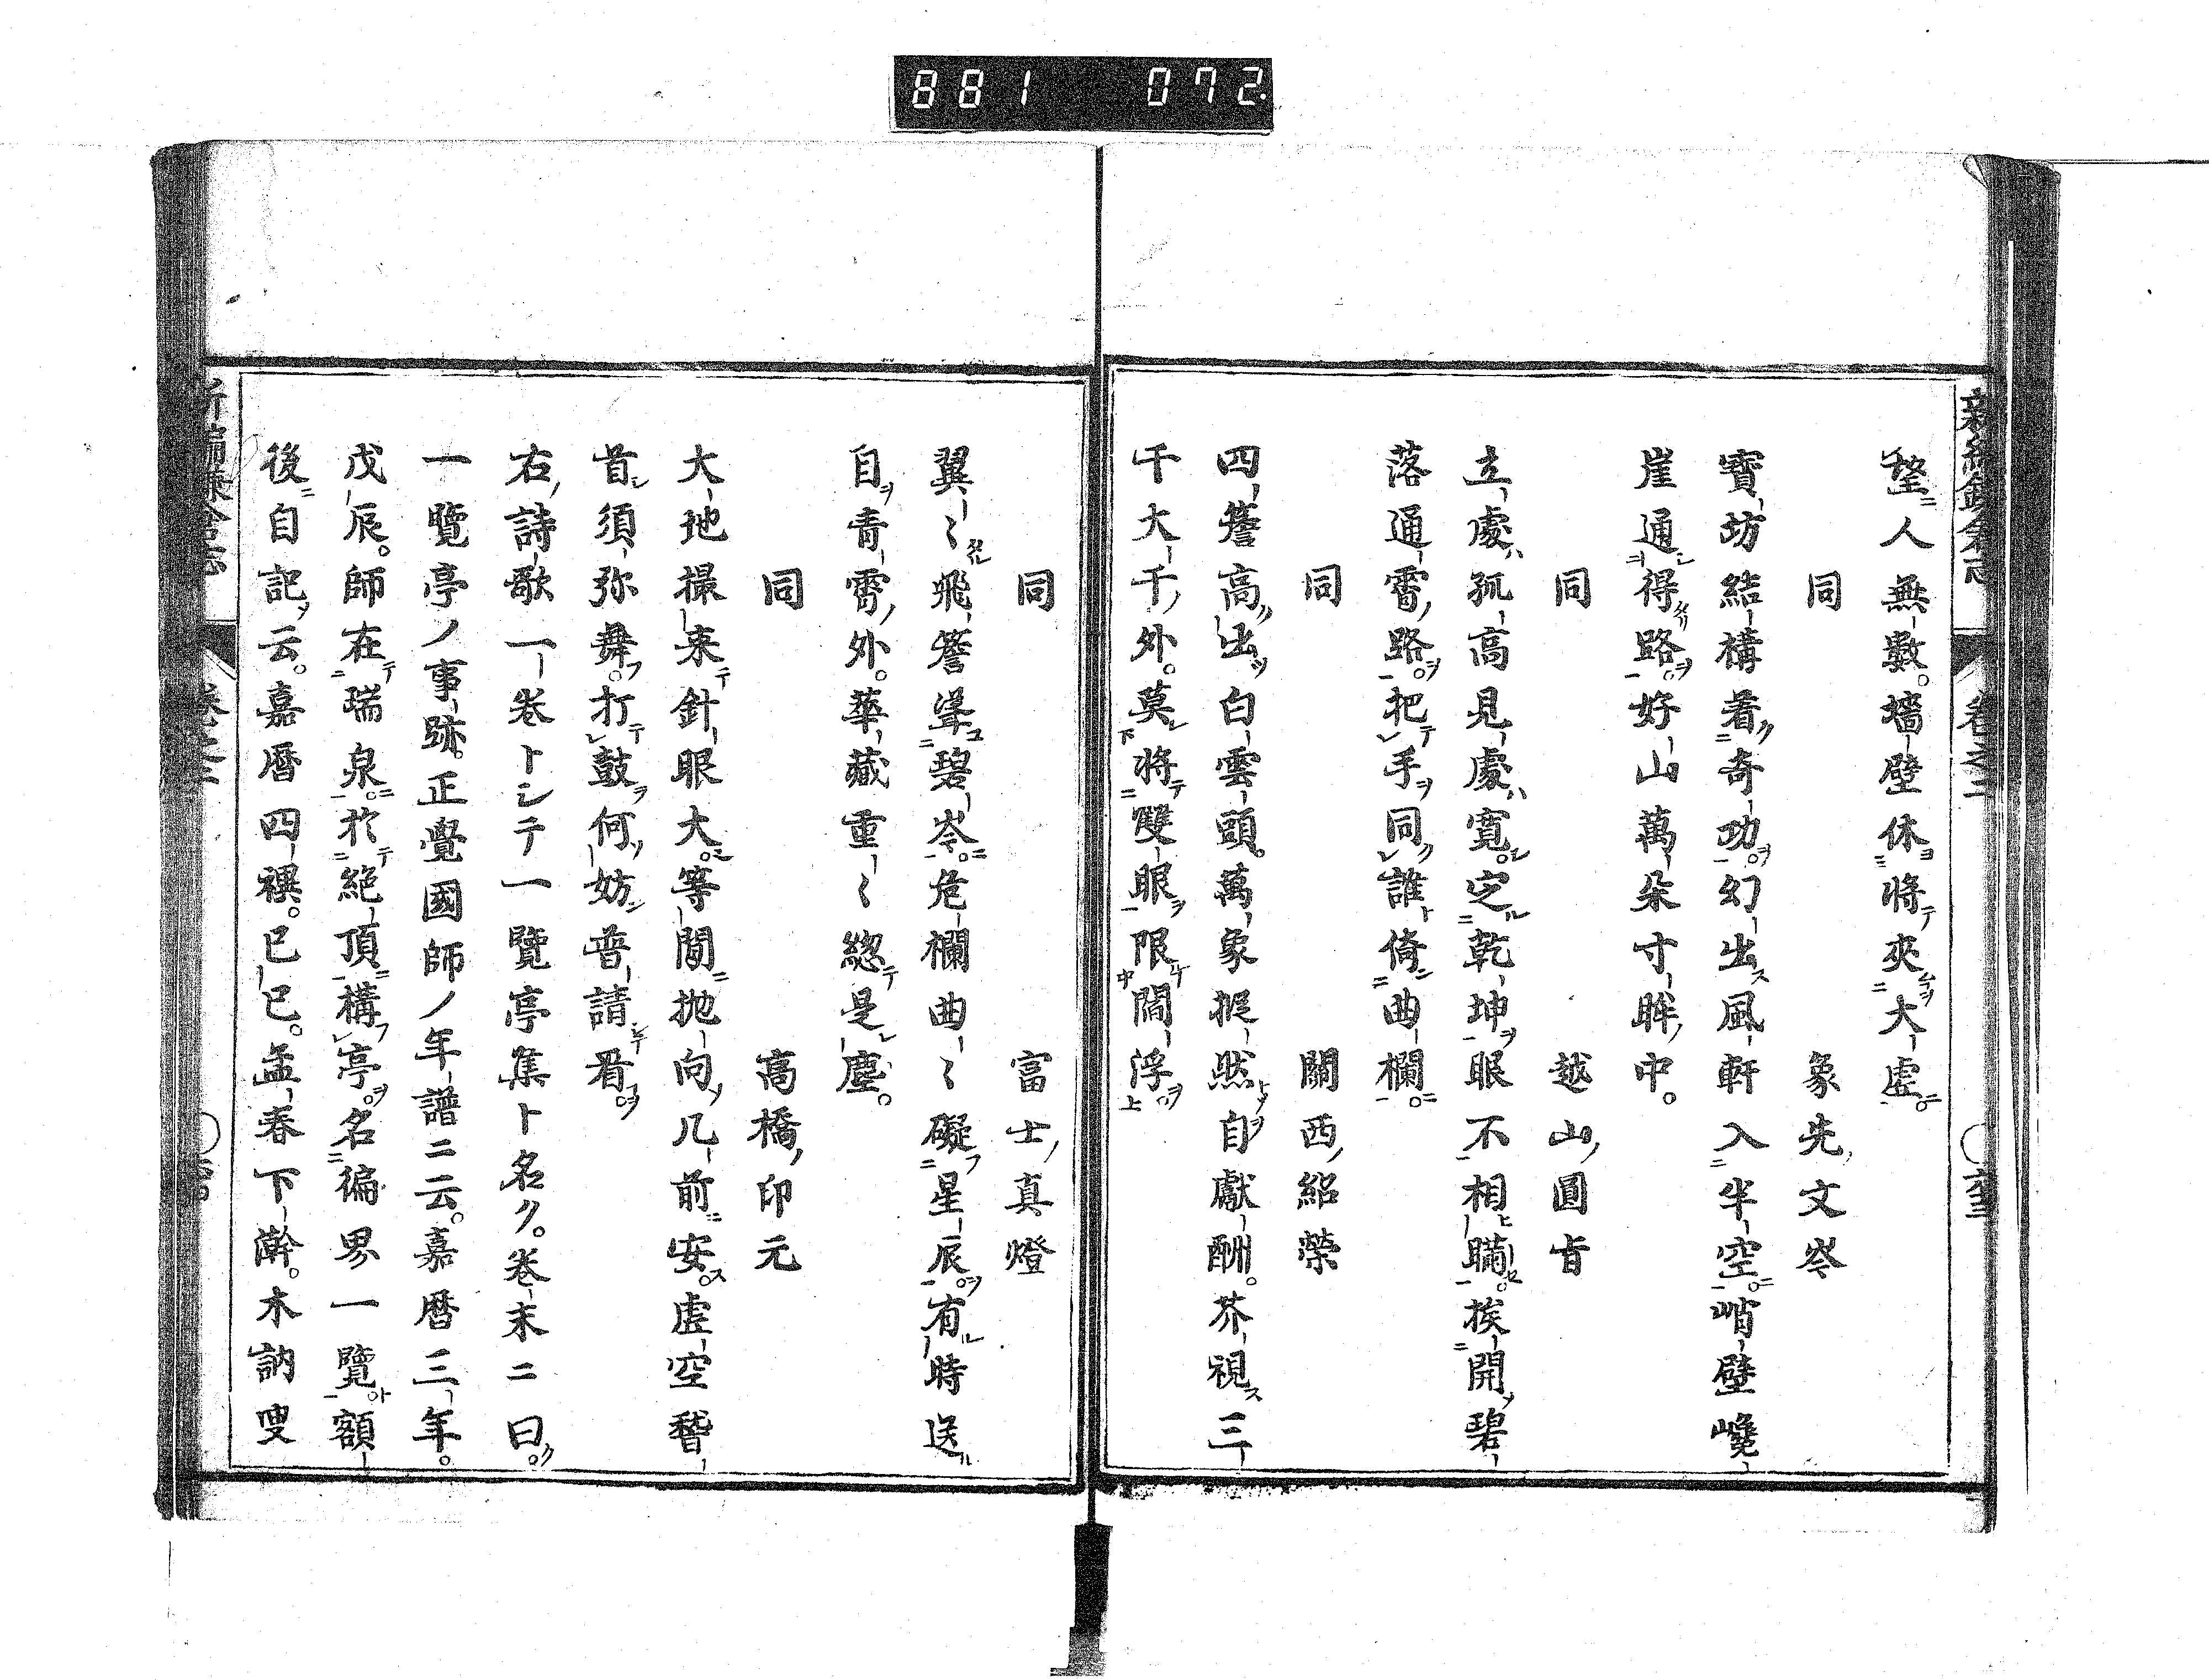 881 072
新編鎌倉志 卷之二 ○ 六十三
瑿人無數。墻壁休將夾大虛。
同 象先文岑
寶坊結構着奇功。幻出風軒入半空。峭壁巉
崖通得路。好山萬朶寸眸中。
同 越山圓旨
立處孤高見處寬。定乾坤眼不相瞞。挨開碧
落通霄路。把手同誰倚曲欄。
同 關西紹榮
四簷高出白雲頭。萬象摐然自獻酬。芥視三
千大千外。莫將雙眼限閻浮。
同 富士真燈
翼〻飛簷聳碧岑。危欄曲〻礙星辰。有時送
目青霄外。華藏重〻總是塵。
同 高橋印元
大地撮來針眼大。等閒抛向几前安。虛空稽
首須弥舞。打鼓何妨普請看。
右詩歌一卷トシテ一覽亭集ト名ク。卷末ニ曰。
一覽亭ノ事跡。正覺國師ノ年譜ニ云。嘉曆三年。
戊辰。師在瑞泉。於絕頂構亭。名徧界一覽額
後自記云。嘉曆四禩。已巳。孟春下澣。木訥叟
新編鎌倉志 卷之二 ○